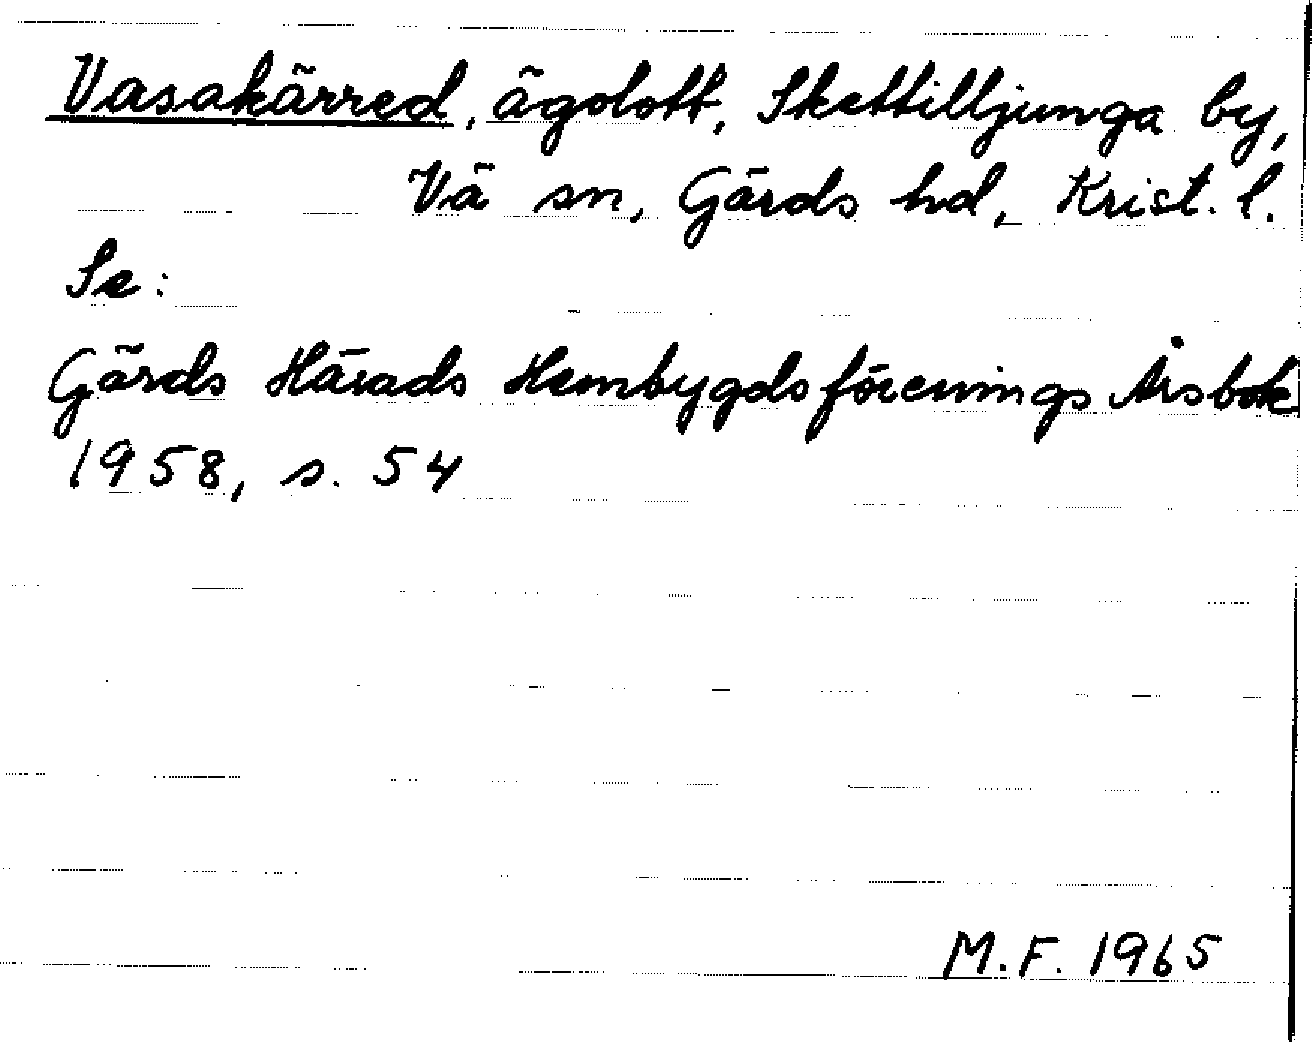 Vasakärred, ägolott, Skettilljunga by,
Vä sn, Gärds hd, Krist. l.
Se:
Gärds Härads Hembygdsförenings Årsbok
1958, s. 54
M.F. 1965